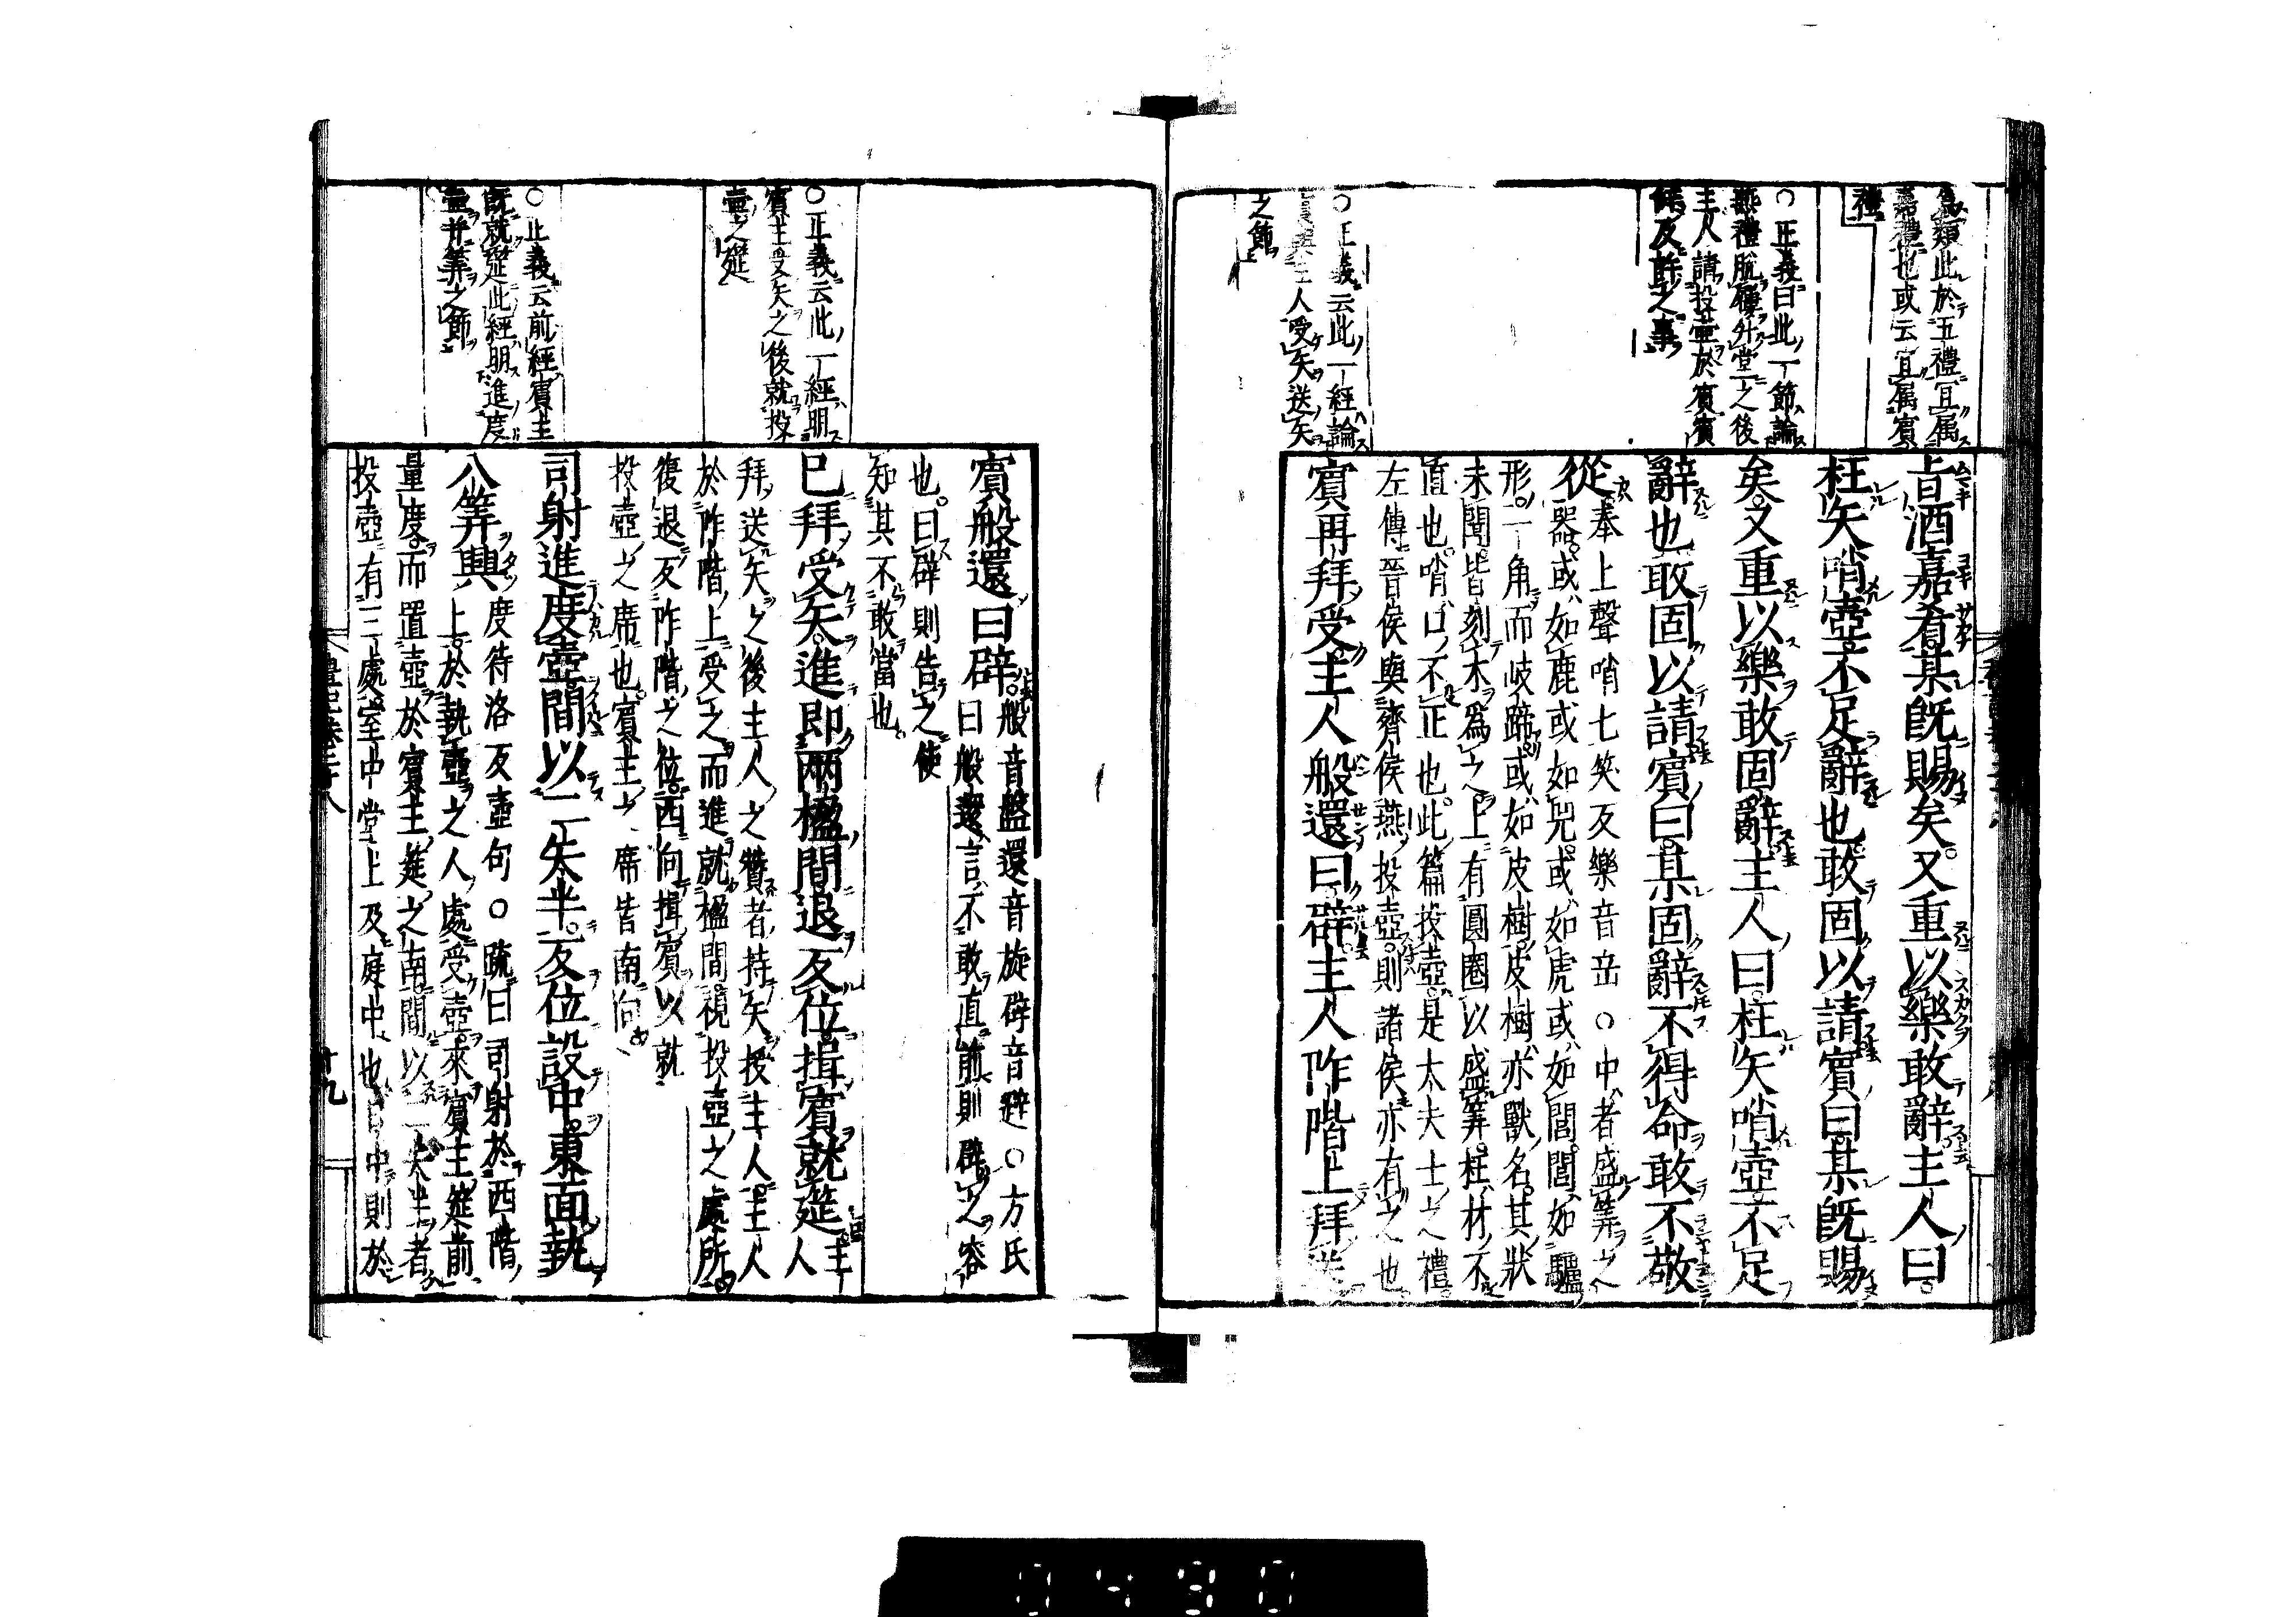 爲類此於五禮宜屬
嘉禮也或云宜屬賓
禮
○正義曰此一節論
燕禮脫屨升堂之後
主人請投壺於賓賓
辭及許之事
○正義云此一經論
賓與主人受矢送矢
之節
旨酒嘉肴某既賜矣又重以樂敢辭主人曰
枉矢哨壺不足辭也敢固以請賓曰某既賜
矣又重以樂敢固辭主人曰枉矢哨壺不足
辭也敢固以請賓曰某固辭不得命敢不敬
從奉上聲哨七笑反樂音岳○中者盛筭之
器或如鹿或如兕或如虎或如閭閭如驢
形一角而岐蹄或如皮樹皮樹亦獸名其狀
未聞皆刻木爲之上有圓圈以盛筭枉材不
直也哨口不正也此篇投壺是大夫士之禮
左傳晉侯與齊侯燕投壺則諸侯亦有之也
賓再拜受主人般還曰辟主人阼階上拜送
○正義云此一經明
賓主受矢之後就投
壺之筵
○正義云前經賓主
既就筵此經明進度
壺并筭之節
賓般還曰辟般音盤還音旋辟音避○方氏
曰般還言不敢直前則辟之容
也曰辟則告之使
知其不敢當也
已拜受矢進即兩楹間退反位揖賓就筵主人
拜送矢之後主人之贊者持矢授主人主人
於阼階上受之而進就楹間視投壺之處所
復退反阼階之位西向揖賓以就
投壺之席也賓主之席皆南向
司射進度壺間以二矢半反位設中東面執
八筭興度待洛反壺句○疏曰司射於西階
上於執壺之人處受壺來賓主筵前
量度而置壺於賓主筵之南間以二矢半者
投壺有三處室中堂上及庭中也日中則於
禮記卷二十八
十九